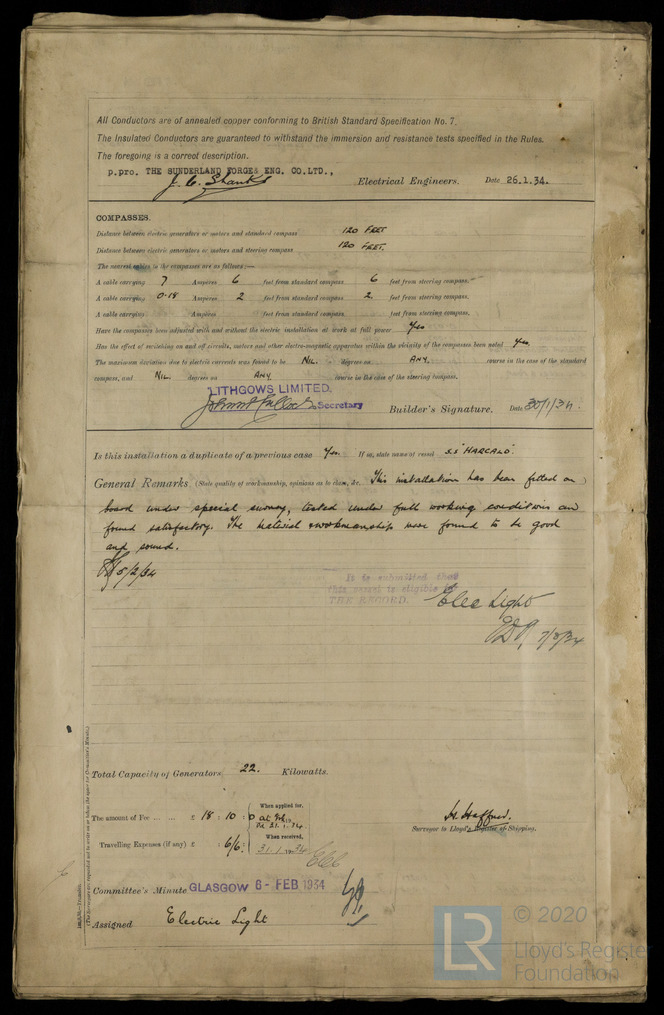 All Conductors are of annealed copper conforming to British Standard Specification No. 7.
The Insulated Conductors are guaranteed to withstand the immersion and resistance tests specified in the Rules.
The foregoing is a correct description.
p.pro. THE SUNDERLAND FORGE & ENG. CO.LTD.,
Electrical Engineers. Date 26.1.34.
COMPASSES.
Distance between electric generators or motors and standard compass 120 FEET
Distance between electric generators or motors and steering compass 120 FEET.
The nearest cables to the compasses are as follows:—
A cable carrying 7 Amperes 6 feet from standard compass 6 feet from steering compass.
A cable carrying 0.18 Amperes 2 feet from standard compass 2 feet from steering compass.
A cable carrying Amperes feet from standard compass feet from steering compass.
Have the compasses been adjusted with and without the electric installation at work at full power Yes
Has the effect of switching on and off circuits, motors and other electro-magnetic apparatus within the vicinity of the compasses been noted Yes
The maximum deviation due to electric currents was found to be NIL. degrees on ANY. course in the case of the standard
compass, and NIL. degrees on ANY course in the case of the steering compass.
LITHGOWS LIMITED.
Secretary Builder's Signature. Date 30/1/34.
Is this installation a duplicate of a previous case Yes. If so, state name of vessel S.S "HARCALO".
General Remarks. (State quality of workmanship, opinions as to class, &c. This installation has been fitted on
board under special survey, tested under full working conditions and
found satisfactory. The material & workmanship were found to be good
and sound.
5/2/34
It is submitted that
this vessel is eligible for
THE RECORD. Elec Light
7/3/34
Total Capacity of Generators 22. Kilowatts.
The amount of Fee ... ... £ 18 : 10 : 0
When applied for,
31.1.34
Travelling Expenses (if any) £ : 6/6 :
When received,
31.1.34
Surveyor to Lloyd's Register of Shipping.
Committee's Minute GLASGOW 6 - FEB 1934
Assigned Electric Light
© 2020
Lloyd's Register
Foundation